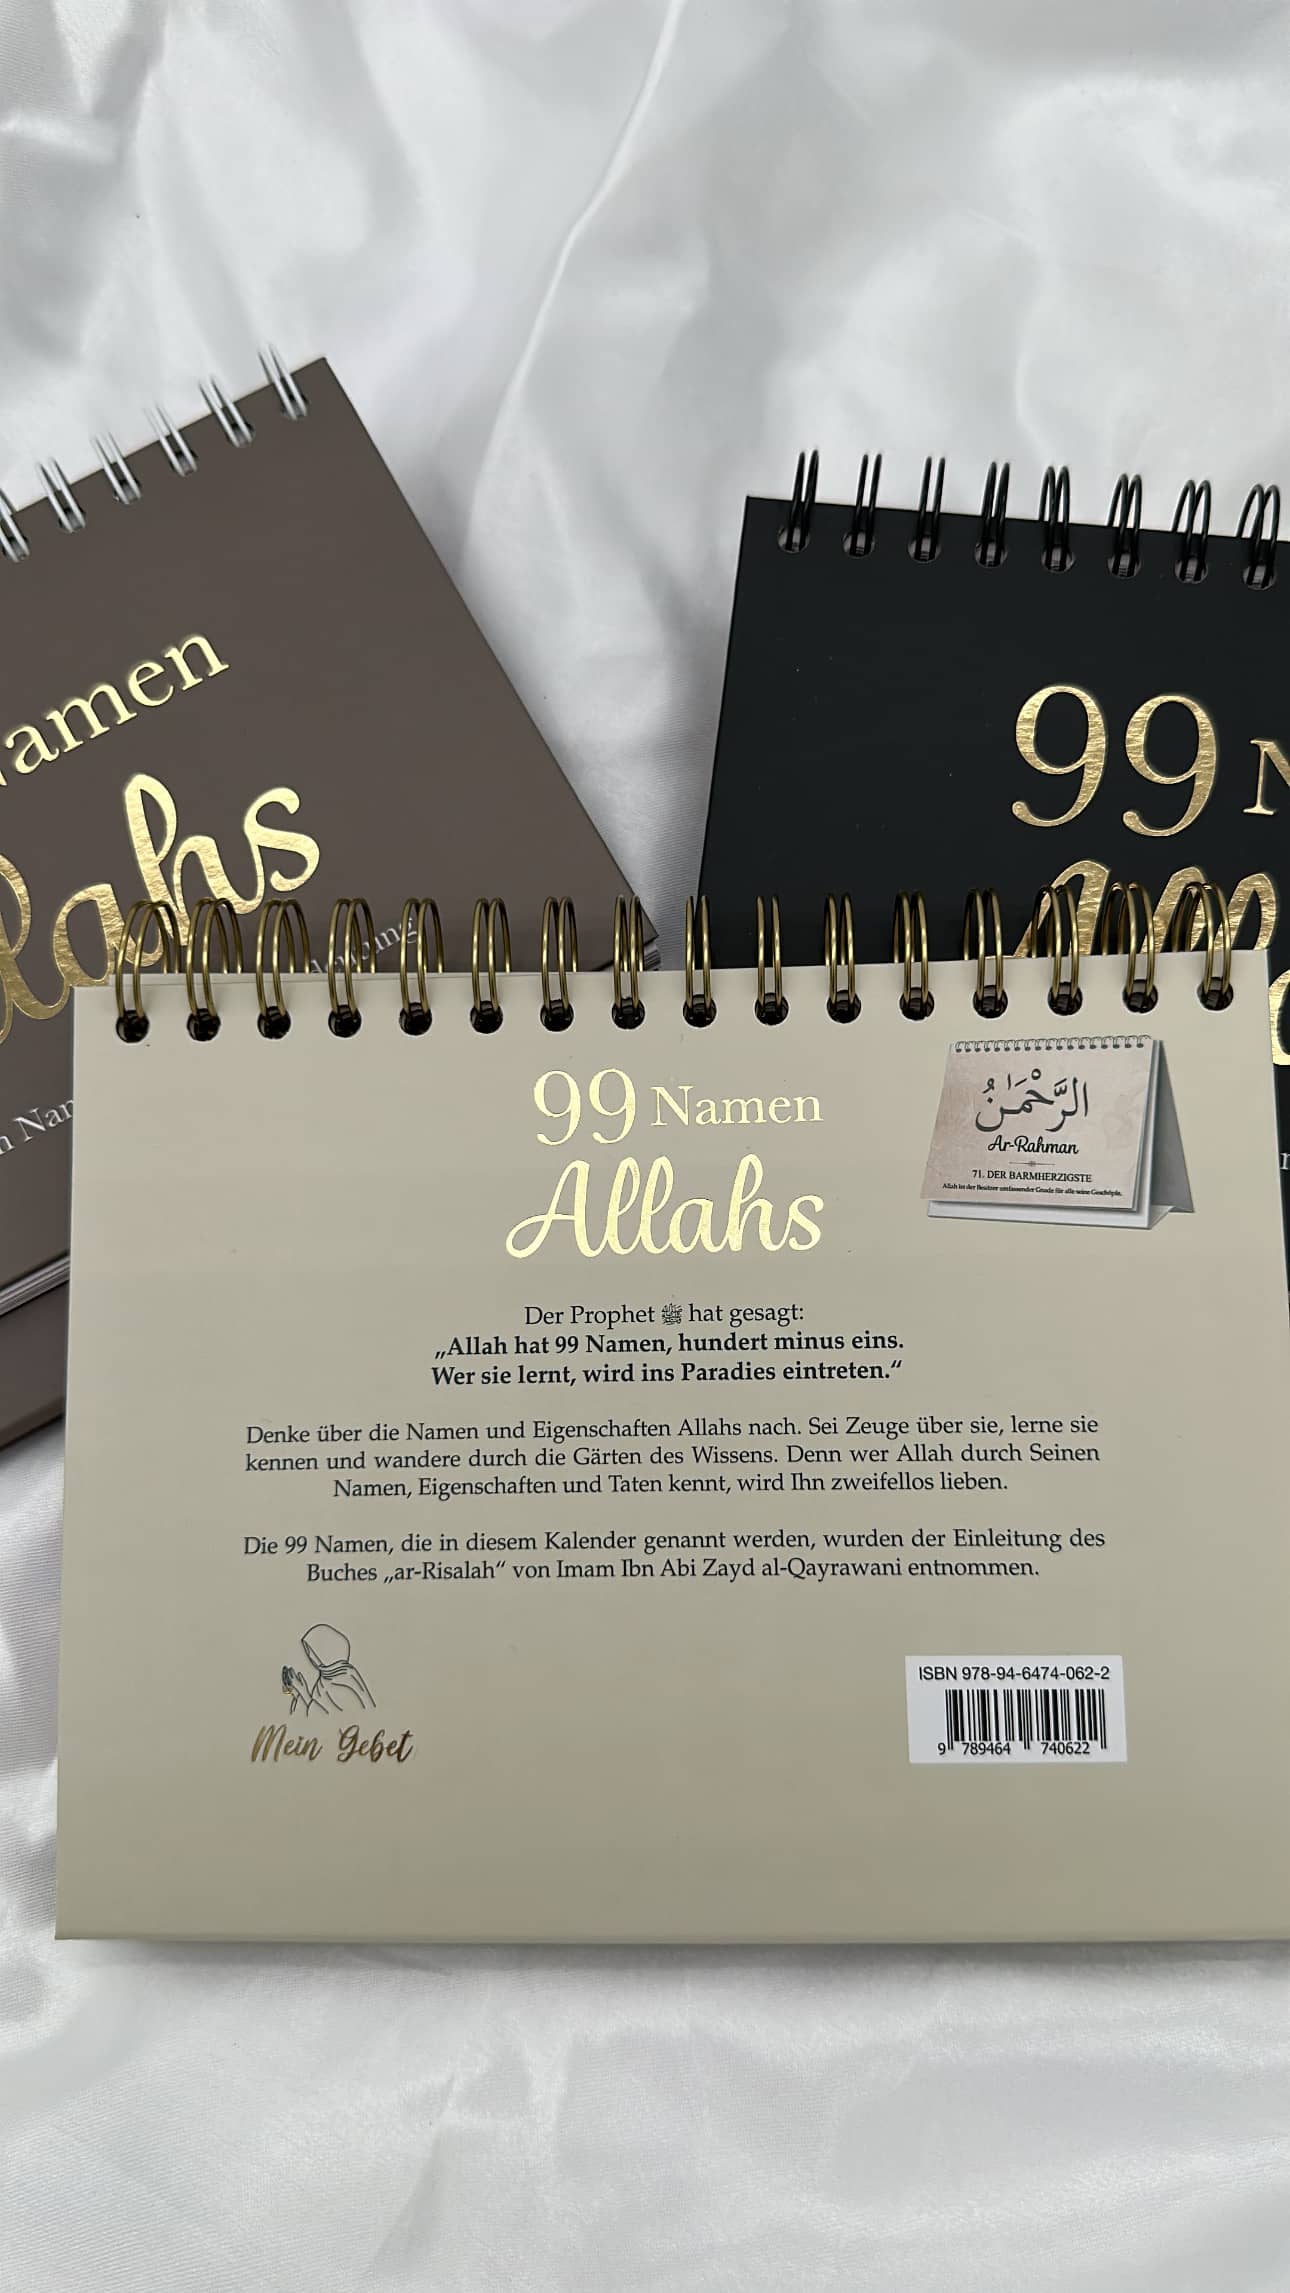 Namen
llahs
99
99 Namen
Allahs
الرَّحْمَٰنُ
Ar-Rahman
71. DER BARMHERZIGSTE
Allah ist der Besitzer umfassender Gnade für alle seine Geschöpfe.
Der Prophet ﷺ hat gesagt:
„Allah hat 99 Namen, hundert minus eins.
Wer sie lernt, wird ins Paradies eintreten.“
Denke über die Namen und Eigenschaften Allahs nach. Sei Zeuge über sie, lerne sie
kennen und wandere durch die Gärten des Wissens. Denn wer Allah durch Seinen
Namen, Eigenschaften und Taten kennt, wird Ihn zweifellos lieben.
Die 99 Namen, die in diesem Kalender genannt werden, wurden der Einleitung des
Buches „ar-Risalah“ von Imam Ibn Abi Zayd al-Qayrawani entnommen.
Mein Gebet
ISBN 978-94-6474-062-2
9 789464 740622